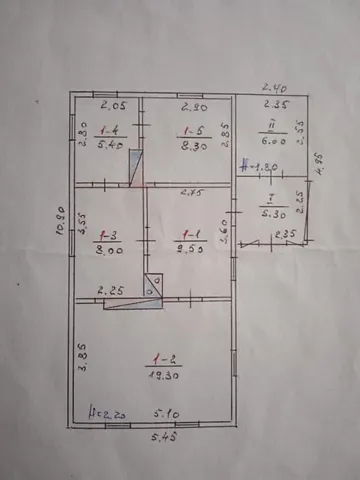 2.40
2.05
2.90
2.35
1-4
5.40
1-5
8.30
II
6.00
2.80
2.85
2.55
4.95
H=1.80
2.75
I
5.30
2.25
2.35
10.90
3.55
1-3
8.00
1-1
9.50
3.60
2.25
3.85
1-2
19.30
H=2.20
5.10
5.45